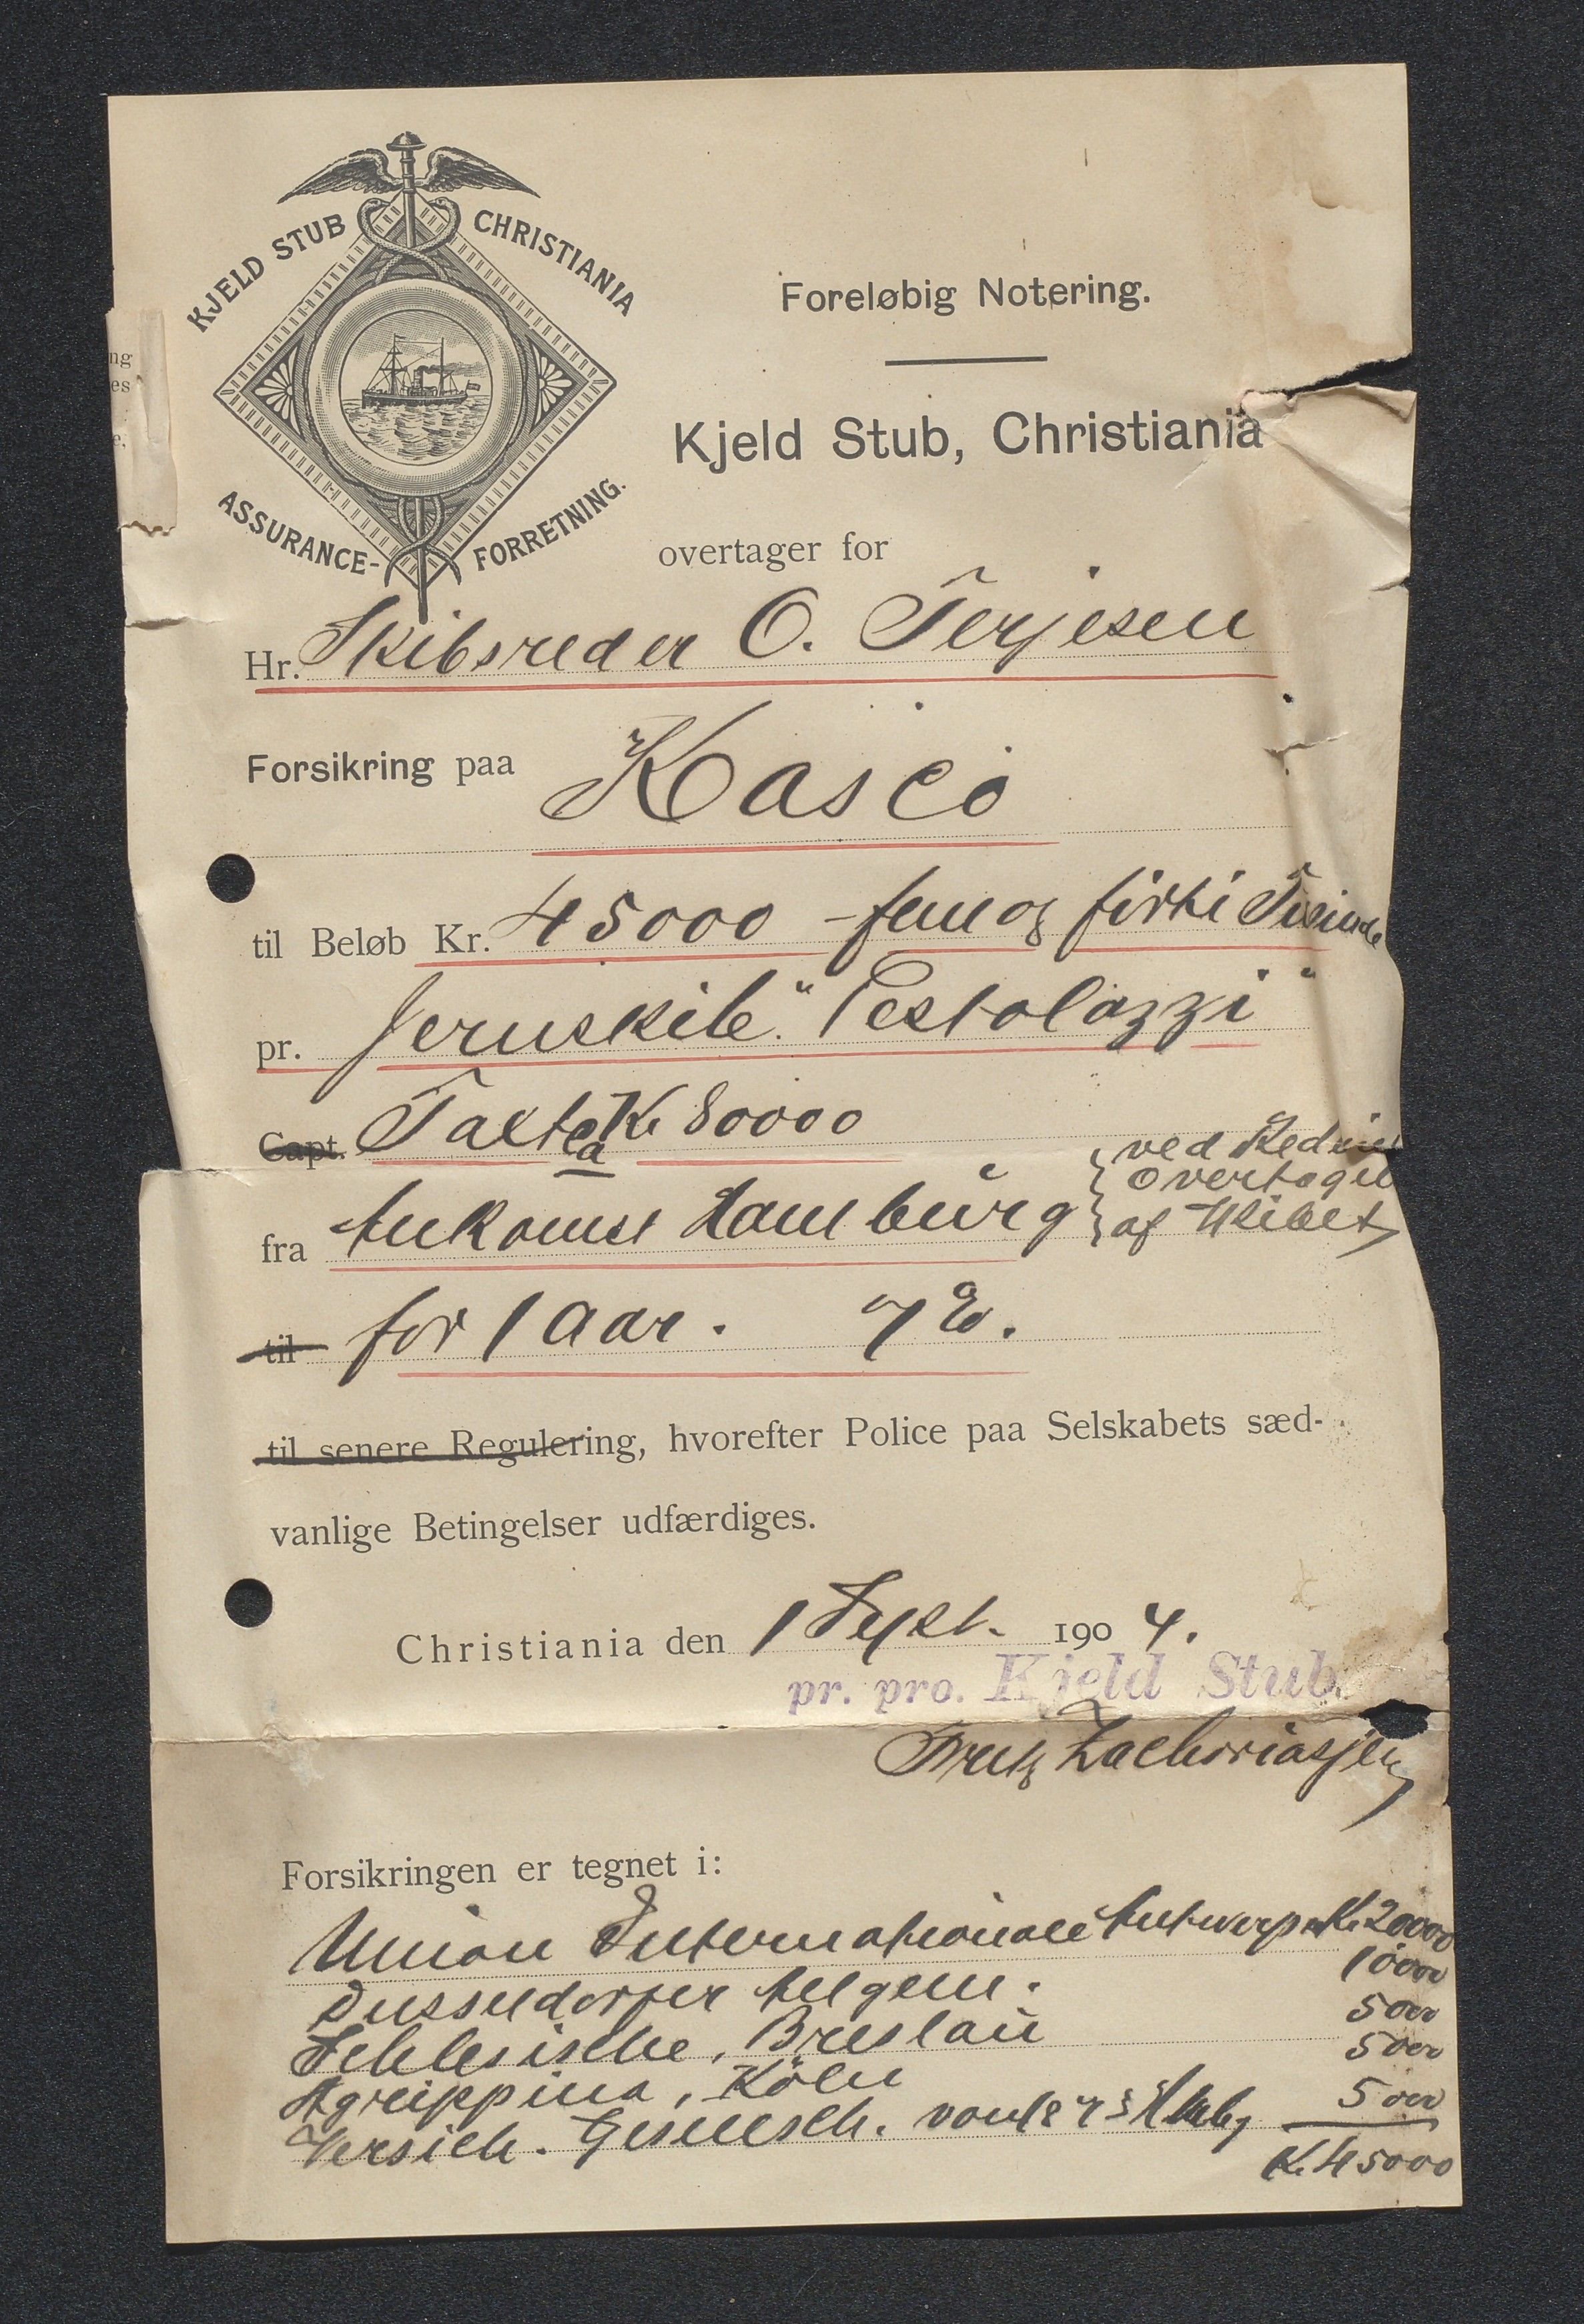 KJELD STUB CHRISTIANIA
ASSURANCE- FORRETNING.
Foreløbig Notering.
Kjeld Stub, Christiania
overtager for
Hr. Skibsreder O. Terjesen
Forsikring paa Kasco
til Beløb Kr. 45000 – fem og firti Tusinde
pr. Jernskib "Pestolazzi"
Capt. Taxt ca Kr 80000
fra Ankomst Hamburg { ved Rederiet
overtagelse
af Skibet
til for 1 Aar. 7 %.
til senere Regulering, hvorefter Police paa Selskabets sæd-
vanlige Betingelser udfærdiges.
Christiania den 1 Sept. 1904.
pr. pro. Kjeld Stub.
Zachariassen
Forsikringen er tegnet i:
Union Internationale Antwerpen Kr. 20000
Dusseldorfer Allgem. 10000
Schlesische, Breslau 5000
Agrippina, Köln 5000
Versich. Gesellsch. von 1873 Hbg 5000
Kr. 45000
ng
es
e.